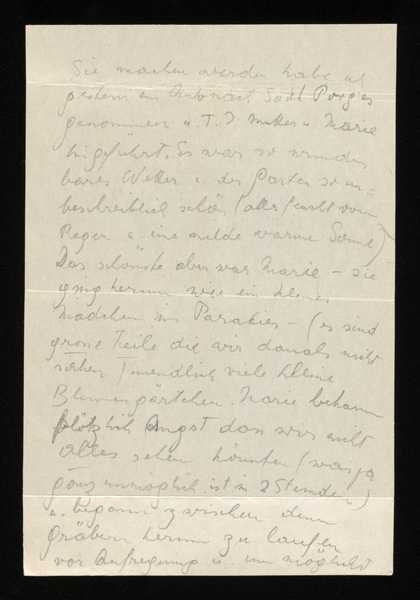 Sie machen werden habe ich
gestern ein Auto nach
genommen u. Mutter u. Marie
hingeführt. Es war so wunder
bares Wetter u. der Garten so un=
beschreiblich schön (alles feucht vom
Regen u. eine milde warme Sonne)
Das schönste aber war Marie – sie
ging herum wie ein kleines
Mädchen im Paradies – (es sind
grosse Teile die wir damals nicht
sahen) unendlich viele kleine
Blumengärtchen. Marie bekam
plötzlich Angst dass wir nicht
alles sehen könnten (was ja
ganz unmöglich ist in 2 Stunden)
u. begann zwischen den
Gräbern herum zu laufen
vor Aufregung u. um möglichst